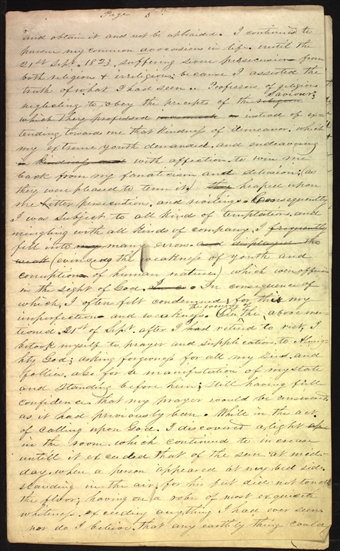 Page 5
and obtain it and not be upbraided. I continued to
pursue my common avocations in life until the
21st Sept. 1823, suffering severe persecution from
both religion & irreligion; because I asserted the
truth of what I had seen. Professors of religion
Saviour;
neglecting to obey the precepts of the religion
which they professed instead of ex
tending towards me that kindness of demeanor which
my extreme youth demanded, and endeavoring
in kindness and with affection to win me
back from my fanaticism and delusion; (as
they were pleased to term it). They heaped upon
me bitter persecution, and Consequently
I was subject to all kind of temptations, and
mingling with all kinds of company, I frequently
fell into many errors and displayed the
weak (evincing the weakness of youth and
corruption of human nature) which was offensive
in the sight of God. In consequence of
which, I often felt condemned for this my
imperfections and weakness. On the evening of the above men
tioned 21st of Sept. after I had retired to rest, I
betook myself to prayer and supplication to Almigh
ty God; asking forgivness for all my sins and
follies, also for a manifestation of my state
and standing before him; still having full
confidence that my prayer would be answered
as it had previously been. While in the act
of calling upon God. I discovered a light
in the room which continued to increase
untill it exceeded that of the sun at mid-
day, when a person appeared at my bed side
standing in the air; for his feet did not touch
the floor; having on a robe of most exquisite
whiteness, exceeding anything I had ever seen
nor do I believe that any earthly things could